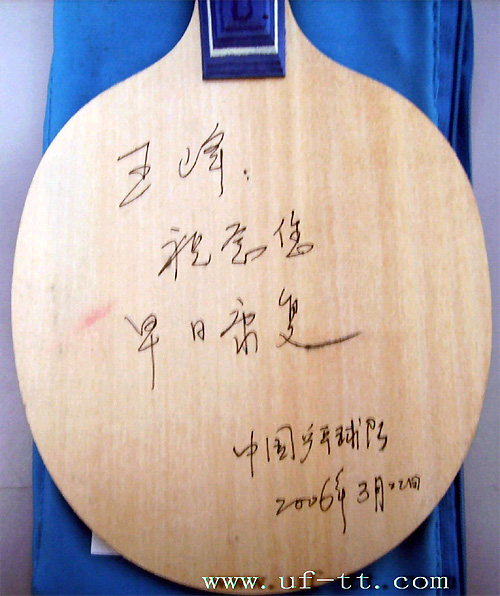 王峰：
祝愿您
早日康复
中国乒乓球队
2006年3月22日
www.uf-tt.com